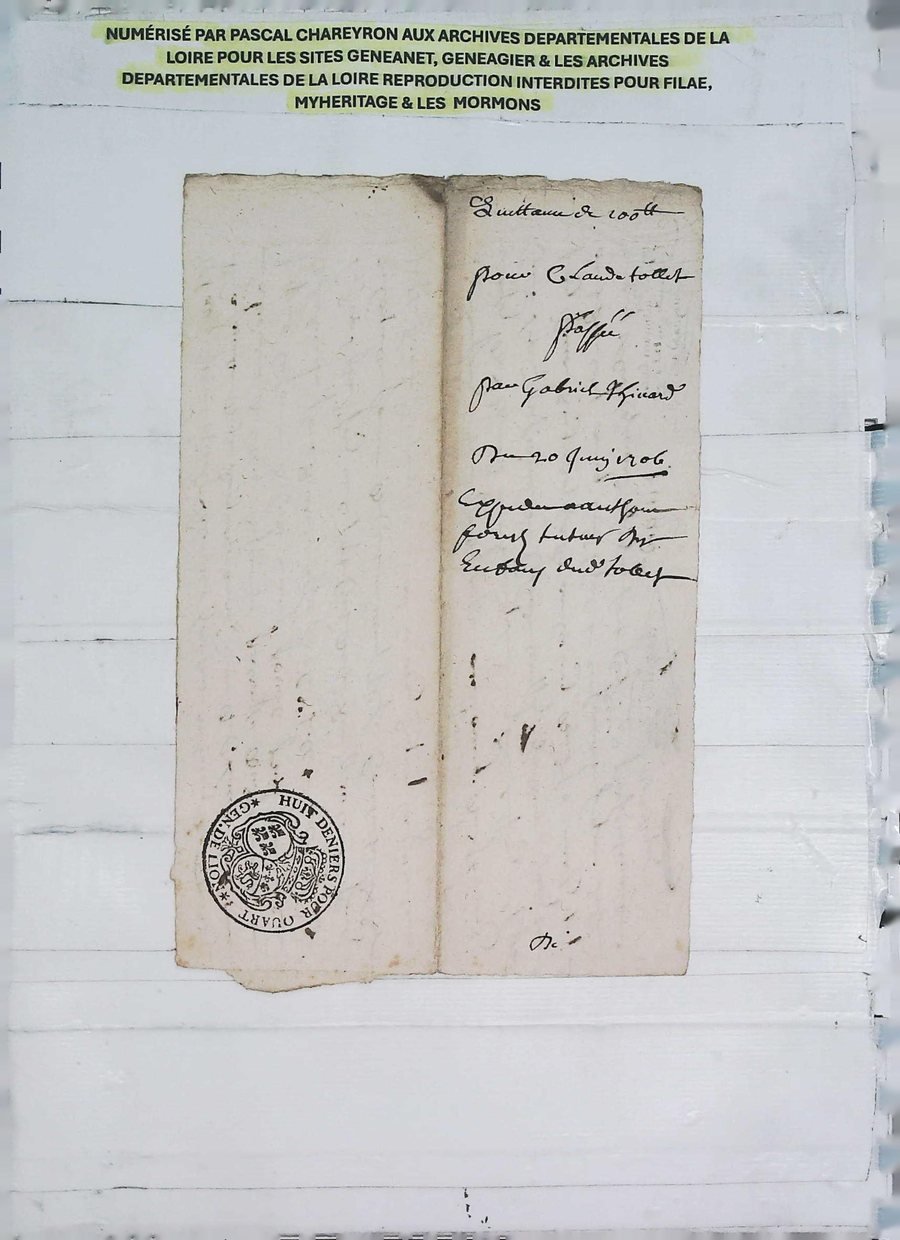 NUMÉRISÉ PAR PASCAL CHAREYRON AUX ARCHIVES DEPARTEMENTALES DE LA
LOIRE POUR LES SITES GENEANET, GENEAGIER & LES ARCHIVES
DEPARTEMENTALES DE LA LOIRE REPRODUCTION INTERDITES POUR FILAE,
MYHERITAGE & LES MORMONS
Quittance de 100tt
pour Claude tollet
passée
par Gabriel
Du 20 Juin 1706
tollet
HUIT DENIERS POUR QUART
*GEN. DE LION*